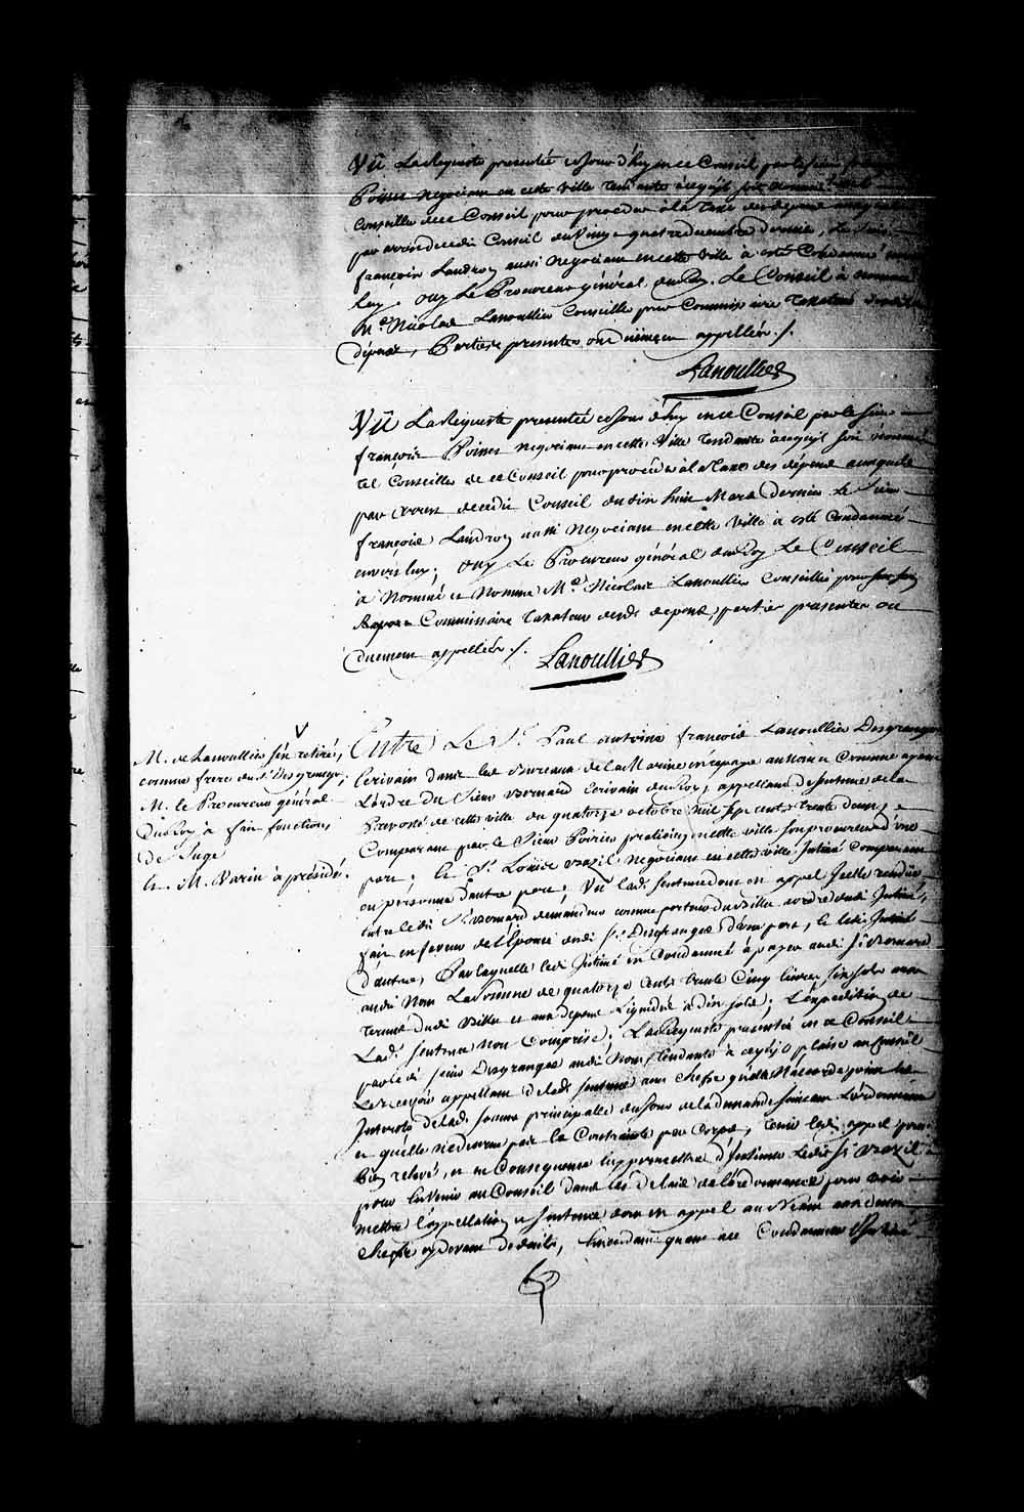 Vû La Requeste presentée ce Jour d'huy en ce Conseil par le sieur
Poisset Negociant en cette ville Tendante à ce qu'il soit nommé tel
Conseiller de ce Conseil pour proceder à la Taxe des dépens
par arrest dudit Conseil du Vingt quatre decembre dernier, Le Sieur
françois Landron aussi Negociant en cette ville à esté Condamné envers
luy. Ouy Le Procureur général du Roy. Le Conseil à nommé
Me. Nicolas Lanoullier Conseiller pour Commissaire Taxateur desdits
dépens, Parties presentes ou duëment appellées ./.
Lanoullier
Vû La Requeste presentée ce Jour d'huy en ce Conseil par le Sieur
françois Poisset Negociant en cette Ville Tendante à ce qu'il soit nommé
tel Conseiller de ce Conseil pour proceder à la Taxe des dépens ausquels
par Arrest de cedit Conseil du dix huit Mars dernier Le Sieur
françois Landron aussi Negociant en cette Ville à esté Condamné
envers luy; Ouy Le Procureur général du Roy Le Conseil
à Nommé et Nomme Me. Nicolas Lanoullier Conseiller pour
Commissaire Taxateur desdits dépens, parties presentes ou
duëment appellées ./. Lanoullier
V
M. de Lanoullier s'en retiré,
comme frere du Sr. Desgranges;
M. le Procureur général
du Roy à fait fonctions
de Juge
et M. Varin à présidé.
Entre Le Sr. Paul antoine françois Lanoullier Desgranges
Ecrivain dans les Bureaux de la Marine en ce pays au nom et Comme ayant
L'ordre du Sieur Bernard Ecrivain du Roy, appellant de Sentence de la
Prevosté de cette ville du quatorze octobre mil sept cent trente deux,
Comparant par le Sieur Poirier praticien en cette ville son procureur d'une
part; Et Sr. Louis Brazil Negociant en cette ville Intimé Comparant
en personne d'autre part; Vû lad. Sentence dont est appel Icelle rendüe
Entre ledit Sr. Bernard demandeur comme porteur du Billet à ordre dudit Intimé,
fait en faveur de l'Epouse dudit Sr. Desgranges d'une part, et ledit Intimé
d'autre, Par laquelle ledit Intimé est Condamné à payer audit Sr. Bernard
audit Nom La Somme de quatorze Cents trente Cinq livres six sols
Terme dudit Billet et aux dépens Liquidés à dix sols; L'expedition de
Lad. Sentence Non Comprise; La Requeste presentée en ce Conseil
par ledit Sieur Desgranges audit Nom, Tendante à ce qu'il plaise au Conseil
Le recevoir appellant de lad. Sentence aux Chefs qu'elle N'accorde point les
Interests de lad. Somme principalle du Jour de la demande suivant L'ordonnance
et qu'elle par la Contrainte par Corps, Tenir ledit appel pour
bien relevé, et en Consequence luy permettre d'Intimer Ledit Sr. Brazil
pour En Venir au Conseil dans les delais de l'ordonnance pour voir
mettre l'appellation et Sentence dont est appel au Neant
Chefs cy devant detaillés, Emendant quant à ce Condamner